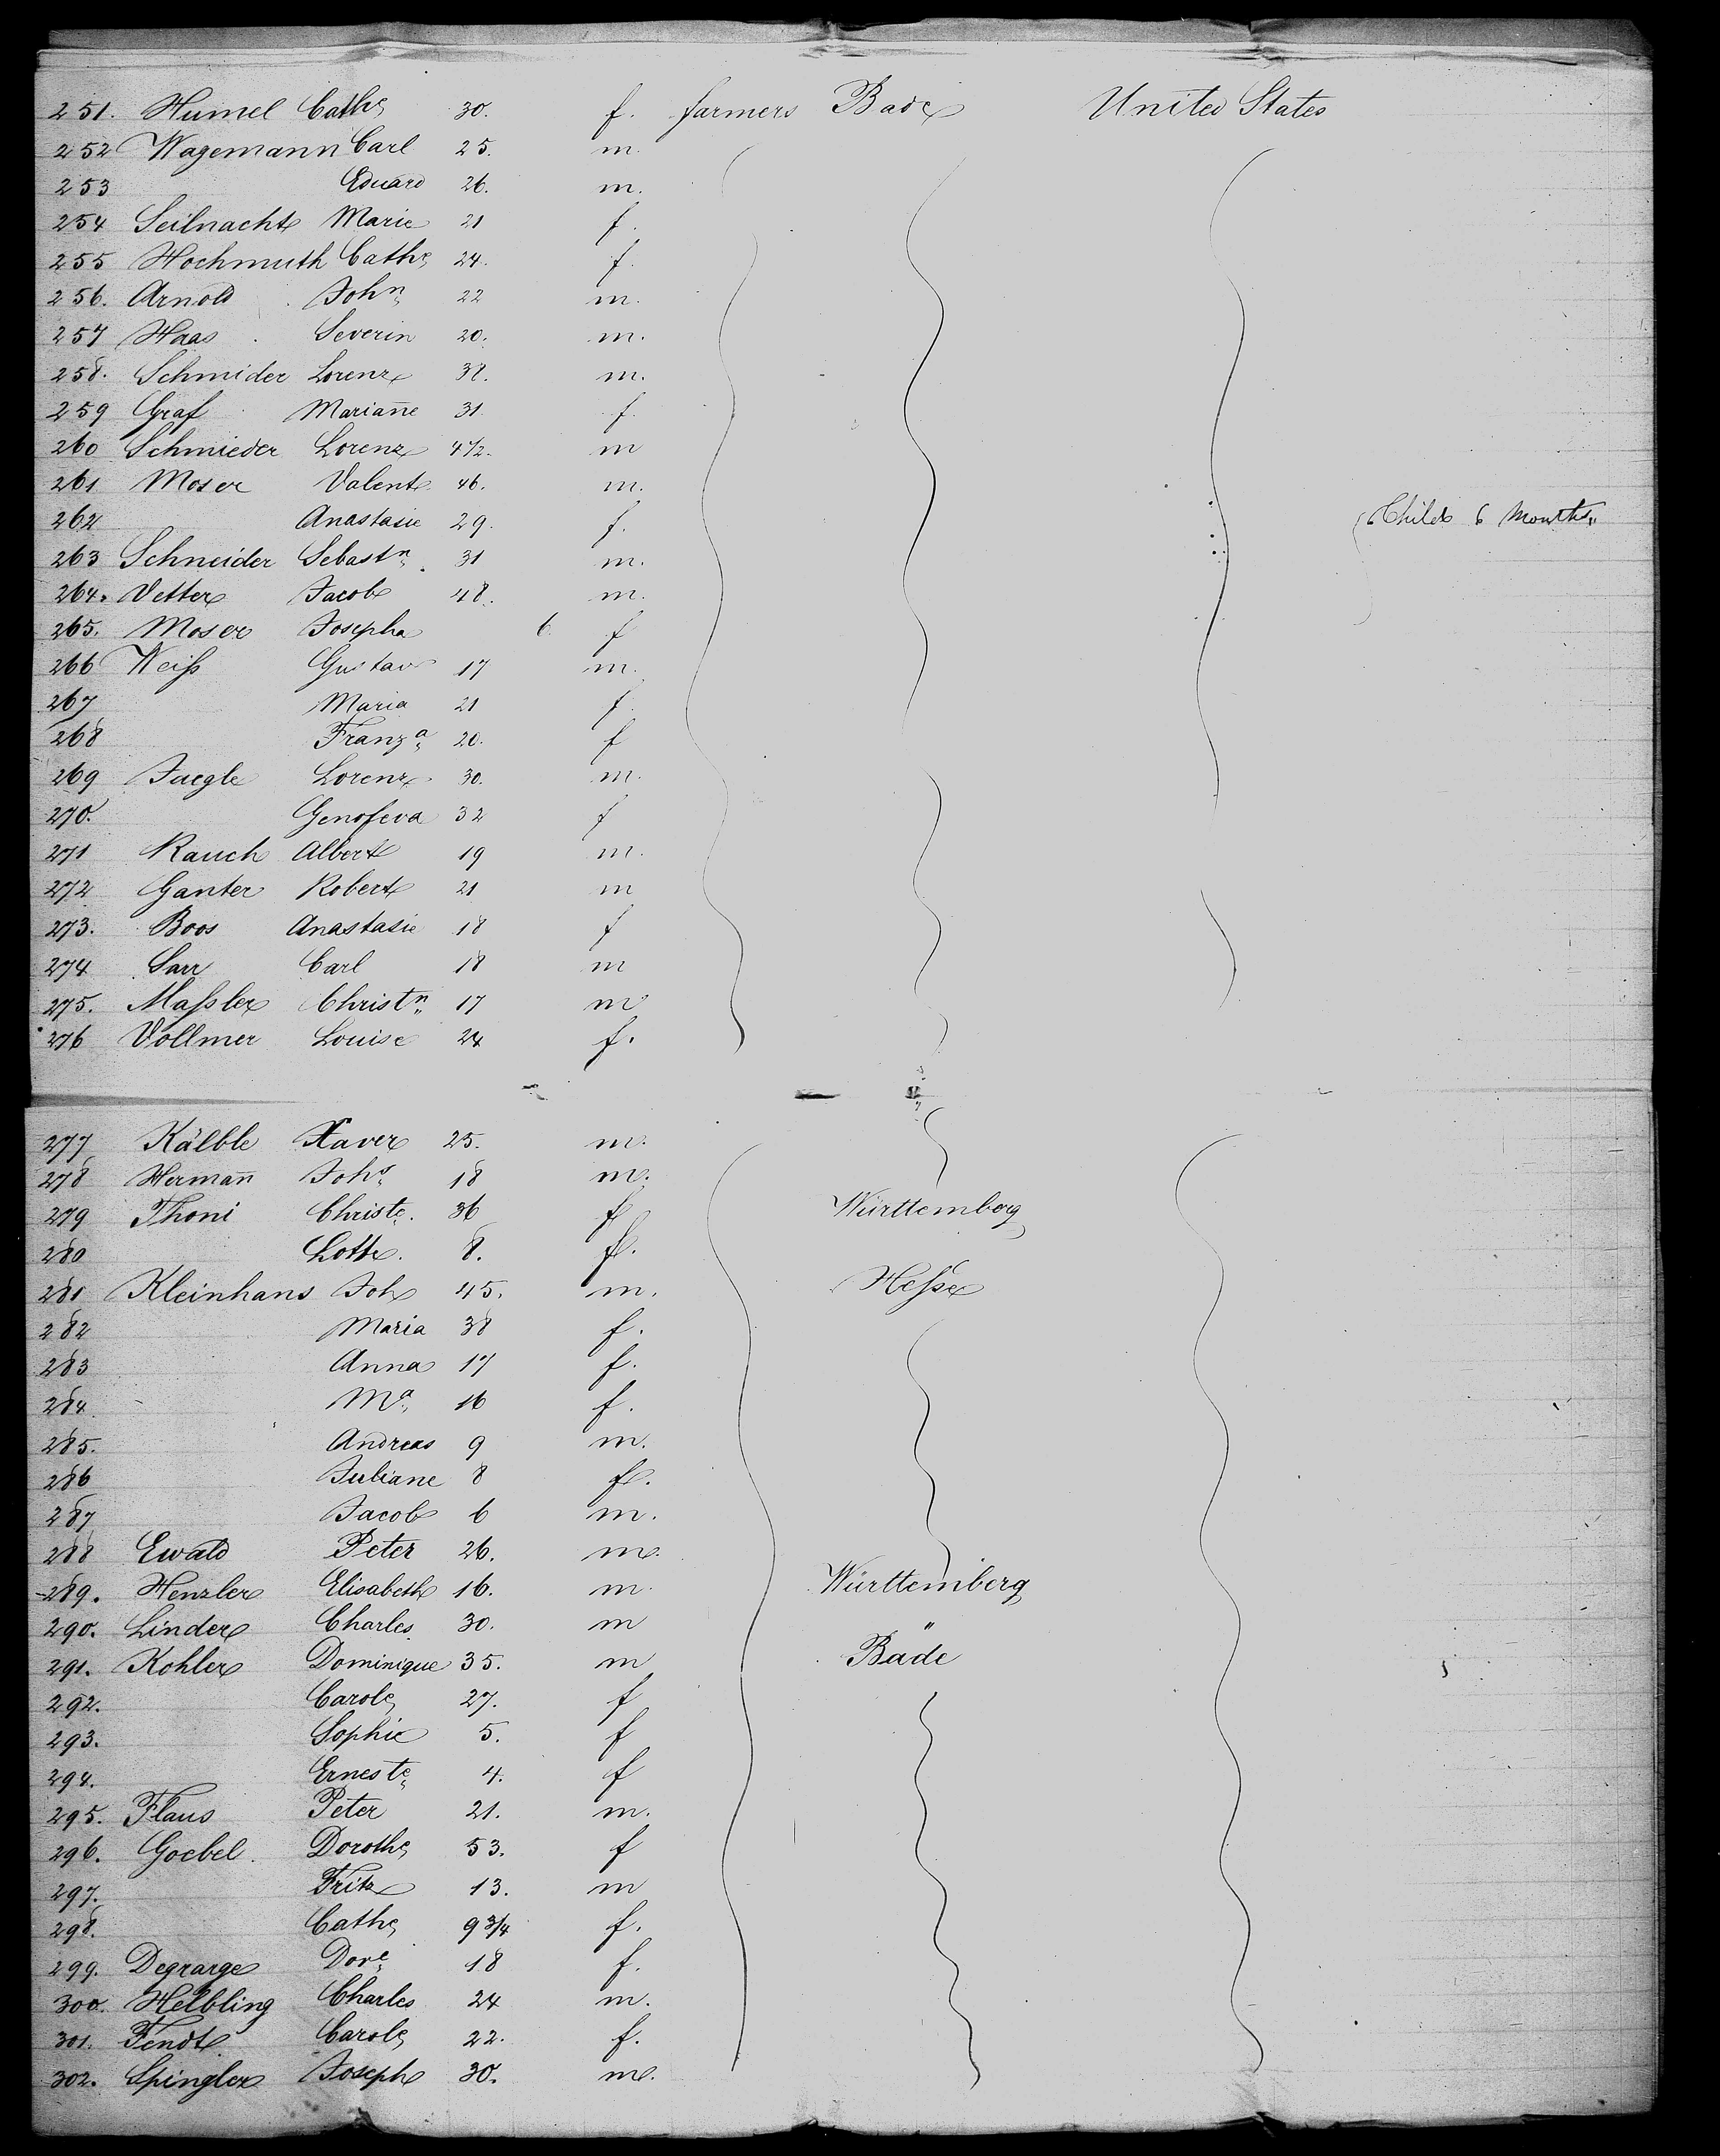 251. Humel Cathe 30. f. farmers Bade United States
252 Wagemann Carl 25. m.
253 Eduard 26. m.
254 Seilnacht Marie 21 f.
255 Hochmuth Cathe 24. f.
256. Arnold John 22 m.
257 Haas Severin 20. m.
258. Schmider Lorenz 38. m.
259 Graf Mariañe 31. f.
260 Schmieder Lorenz 4 1/2. m
261 Moser Valent. 46. m.
262 Anastasie 29. f. Child 6 Months
263 Schneider Sebastn 31 m.
264. Vetter Jacob 48. m.
265. Moser Josepha 6 f
266 Weiß Gustav 17 m.
267 Maria 21 f.
268 Franza 20. f
269 Jaegle Lorenz 30. m.
270. Genofeva 32 f
271 Rauch Albert 19 m.
272 Ganter Robert 21 m
273. Boos Anastasie 18 f
274 Sarr Carl 18 m
275. Maßler Christn 17 m
276 Vollmer Louise 24 f.
277 Kälble Xaver 25. m.
278 Hermañ Johs 18 m.
279 Thoni Christe. 36 f Württemberg
280 Lotte. 8. f.
281 Kleinhans Joh 45. m. Heße
282 Maria 38 f.
283 Anna 17 f.
284 Ma 16 f.
285. Andreas 9 m.
286 Juliane 8 f.
287 Jacob 6 m.
288 Ewald Peter 26. m.
289. Henzler Elisabeth 16. m. Württemberg
290. Linder Charles 30. m "
291. Kohler Dominique 35. m Bade
292. Carole 27. f
293. Sophie 5. f
294. Erneste 4. f
295. Flaus Peter 21. m.
296. Goebel Dorothe 53. f
297. Fritz 13. m
298. Cathe 9 3/4 f.
299. Degrarge Dore 18 f.
300. Helbling Charles 24 m.
301. Fendt Carole 22. f.
302. Spingler Joseph 30. m.